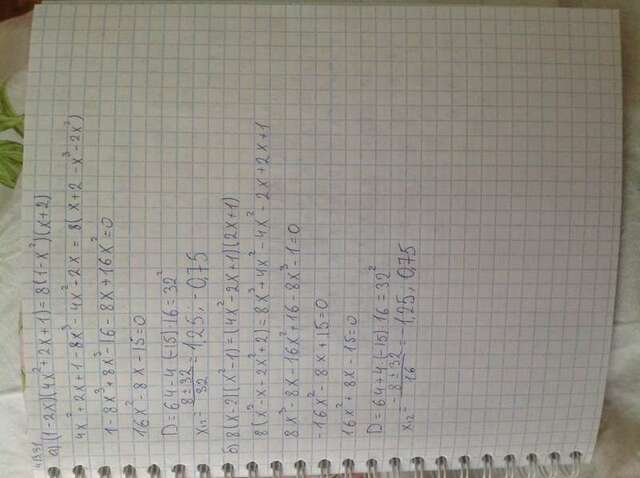 а) (1-2x)(4x²+2x+1)=8(1-x²)(x+2)
4x²+2x+1-8x³-4x²-2x = 8(x+2-x³-2x²)
1-8x³+8x³-16-8x+16x²=0
16x²-8x-15=0
D=64-4·(-15)·16=32²
x₁,₂=(8±32)/32=1,25; -0,75
б) 8(x-2)(x²-1)=(4x²-2x+1)(2x+1)
8(x³-x-2x²+2)=8x³+4x²-4x²-2x+2x+1
8x³-8x-16x²+16-8x³-1=0
-16x²-8x+15=0
16x²+8x-15=0
D=64+4·(-15)·16=32²
x₁,₂=(-8±32)/16=-1,25; 0,75